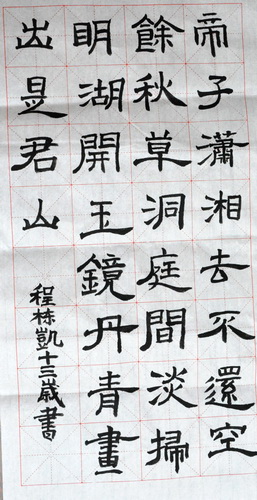 帝子瀟湘去不還空
餘秋草洞庭間淡掃
明湖開玉鏡丹青畫
出是君山
程栋凱十三歲書